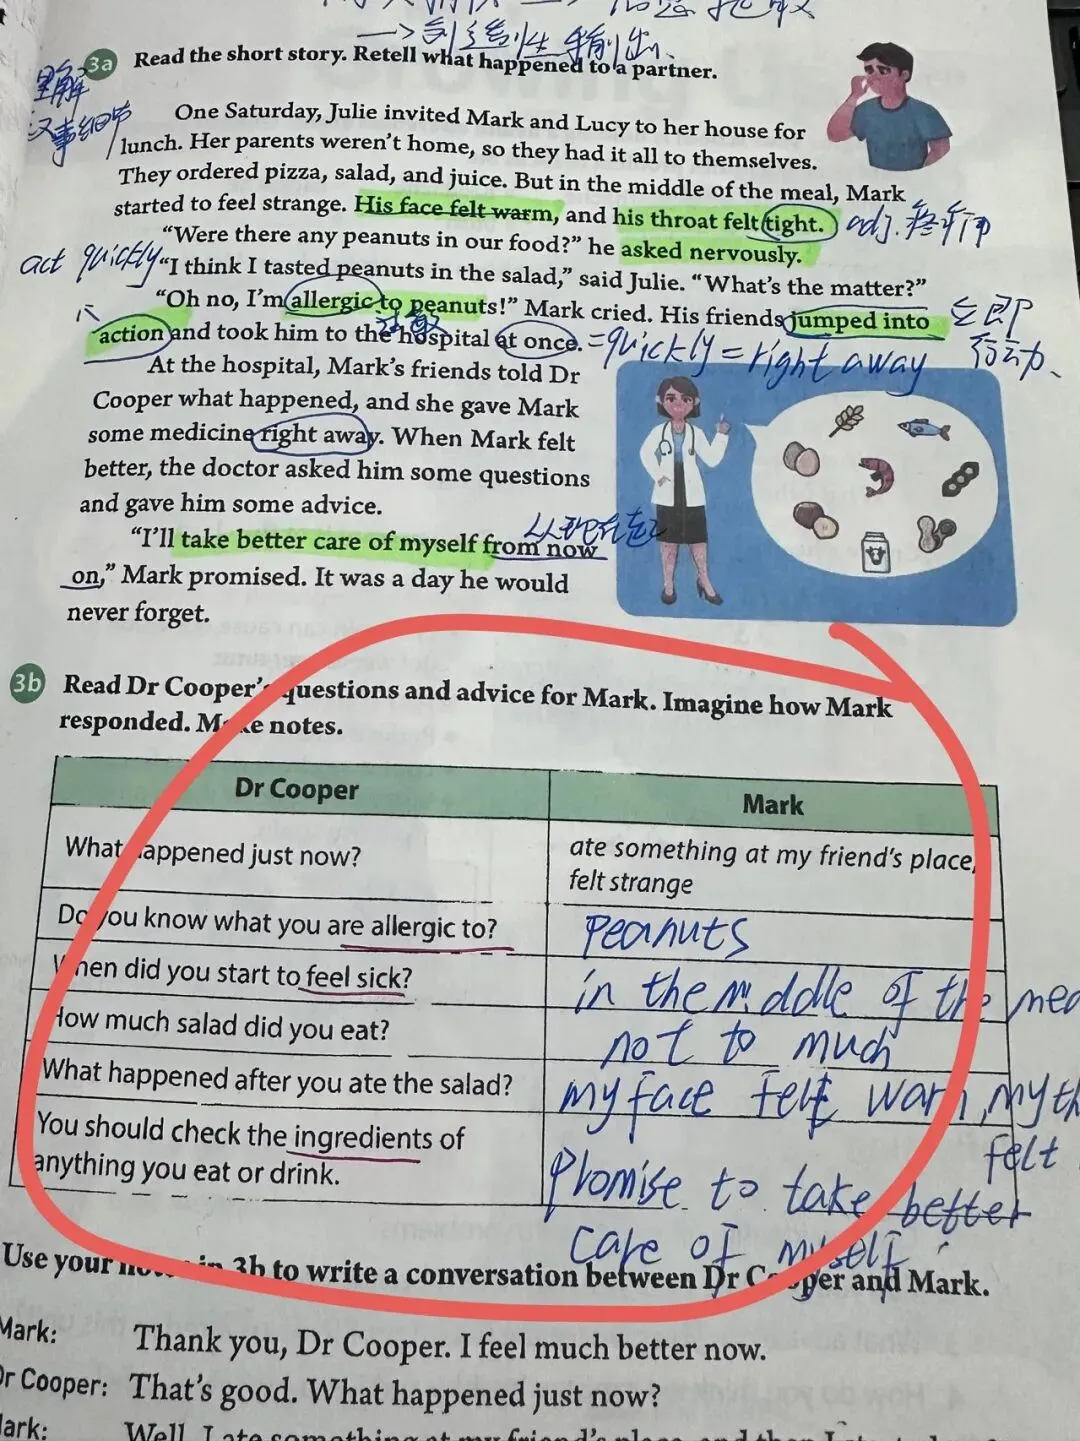 →创造性输出、
3a Read the short story. Retell what happened to a partner.
理解
故事细节
One Saturday, Julie invited Mark and Lucy to her house for
lunch. Her parents weren't home, so they had it all to themselves.
They ordered pizza, salad, and juice. But in the middle of the meal, Mark
started to feel strange. His face felt warm, and his throat felt tight. adj. 疼
"Were there any peanuts in our food?" he asked nervously.
act quickly "I think I tasted peanuts in the salad," said Julie. "What's the matter?"
"Oh no, I'm allergic to peanuts!" Mark cried. His friends jumped into 立即
action and took him to the hospital at once. = quickly = right away 行动、
过敏
At the hospital, Mark's friends told Dr
Cooper what happened, and she gave Mark
some medicine right away. When Mark felt
better, the doctor asked him some questions
and gave him some advice.
从现在起
"I'll take better care of myself from now
on," Mark promised. It was a day he would
never forget.
3b Read Dr Cooper's questions and advice for Mark. Imagine how Mark
responded. Make notes.
Dr Cooper Mark
What happened just now? ate something at my friend's place,
felt strange
Do you know what you are allergic to? Peanuts
When did you start to feel sick? in the middle of the mea
How much salad did you eat? not to much
What happened after you ate the salad? my face felt warm, my th
felt
You should check the ingredients of
anything you eat or drink. Plomise to take better
care of myself
Use your notes in 3b to write a conversation between Dr Cooper and Mark.
Mark: Thank you, Dr Cooper. I feel much better now.
Dr Cooper: That's good. What happened just now?
Mark: Well, I ate something at my friend's place, and then I